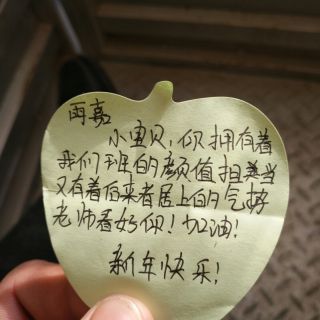 雨嘉
小宝贝,你拥有着
我们班的颜值担当
又有着后来者居上的气势
老师看好你!加油!
新年快乐!